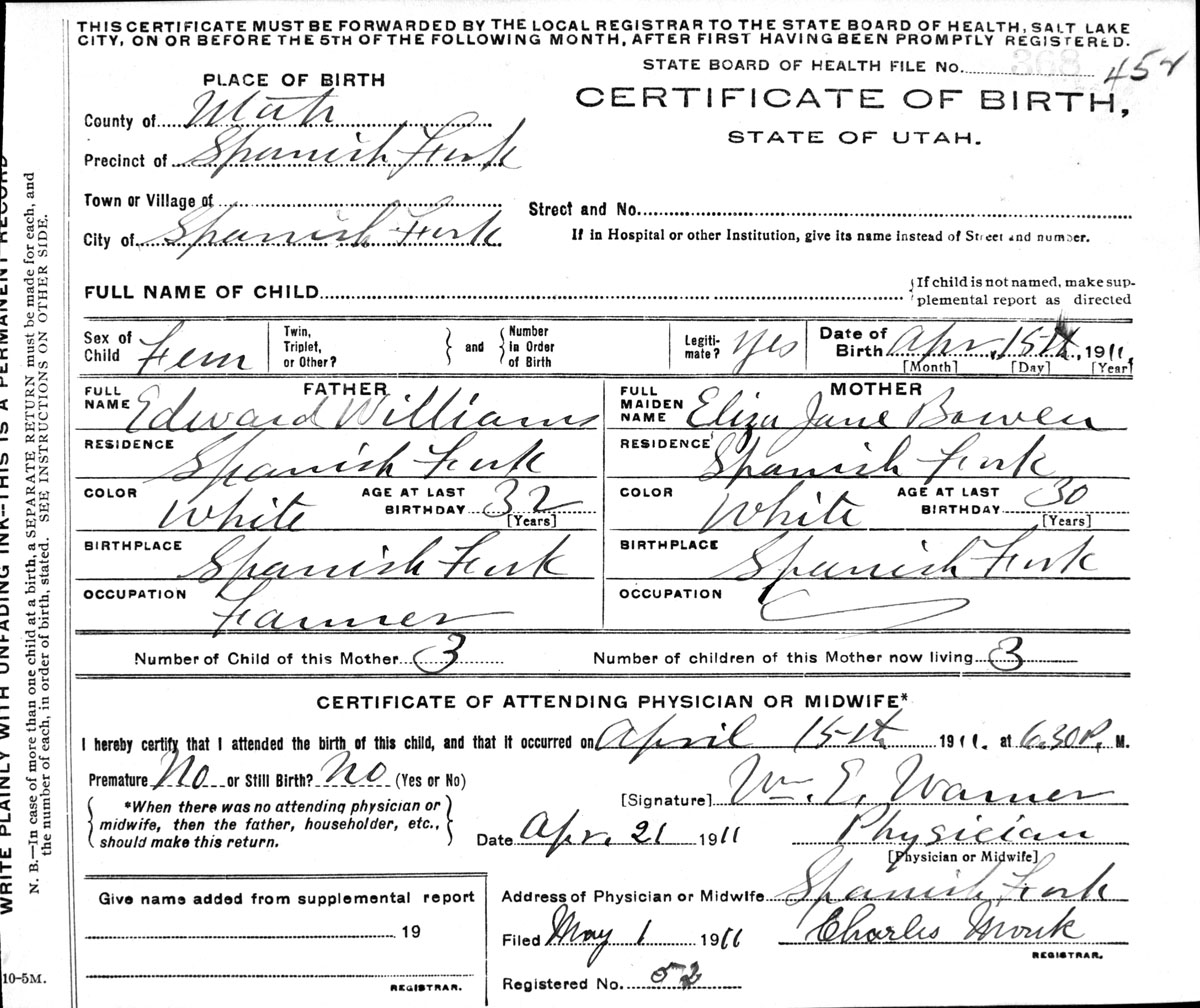 THIS CERTIFICATE MUST BE FORWARDED BY THE LOCAL REGISTRAR TO THE STATE BOARD OF HEALTH, SALT LAKE
CITY, ON OR BEFORE THE 5TH OF THE FOLLOWING MONTH, AFTER FIRST HAVING BEEN PROMPTLY REGISTERED.
STATE BOARD OF HEALTH FILE No. 368 452
PLACE OF BIRTH
CERTIFICATE OF BIRTH,
STATE OF UTAH.
County of Utah
Precinct of Spanish Fork
Town or Village of
Street and No.
City of Spanish Fork
If in Hospital or other Institution, give its name instead of Street and number.
FULL NAME OF CHILD
{If child is not named, make sup-
plemental report as directed
Sex of Child Fem
Twin, Triplet, or Other? } and { Number in Order of Birth
Legiti-mate? Yes
Date of Birth Apr. 15th, 1911,
[Month] [Day] [Year]
FATHER
FULL NAME Edward Williams
RESIDENCE Spanish Fork
COLOR White AGE AT LAST BIRTHDAY 32
[Years]
BIRTHPLACE Spanish Fork
OCCUPATION Farmer
MOTHER
FULL MAIDEN NAME Eliza Jane Bowen
RESIDENCE Spanish Fork
COLOR White AGE AT LAST BIRTHDAY 30
[Years]
BIRTHPLACE Spanish Fork
OCCUPATION
Number of Child of this Mother 3 Number of children of this Mother now living 3
CERTIFICATE OF ATTENDING PHYSICIAN OR MIDWIFE*
I hereby certify that I attended the birth of this child, and that it occurred on April 15th 1911. at 6.30 P. M.
Premature No or Still Birth? No (Yes or No)
{ *When there was no attending physician or
midwife, then the father, householder, etc.,
should make this return. }
[Signature] Wm. E. Warner
Date Apr. 21 1911 Physician
[Physician or Midwife]
Address of Physician or Midwife Spanish Fork
Filed May 1 1911 Charles Monk
REGISTRAR.
Registered No. 52
Give name added from supplemental report
19
REGISTRAR.
WRITE PLAINLY WITH UNFADING INK--THIS IS A PERMANENT RECORD
N. B.—In case of more than one child at a birth, a SEPARATE RETURN must be made for each, and
the number of each, in order of birth, stated. SEE INSTRUCTIONS ON OTHER SIDE.
10-5M.